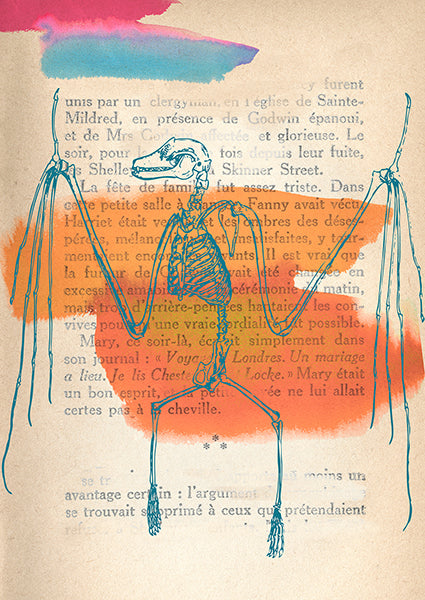 y furent
unis par un clergyman, en l'église de Sainte-
Mildred, en présence de Godwin épanoui,
et de Mrs affectée et glorieuse. Le
soir, pour fois depuis leur fuite,
les Shelle Skinner Street.
La fête de famil fut assez triste. Dans
cette petite salle à Fanny avait vécu,
Harriet était les ombres des déses-
pérées, mélanc insatisfaites, y tour-
mentent encore vants. Il est vrai que
la fureur de avait été changée en
excessive cérémonie matin,
mais trop d'arrière-pensées hantaient les con-
vives pour une vraie cordialité possible.
Mary, ce soir-là, écrit simplement dans
son journal : « Voyage Londres. Un mariage
a lieu. Je lis Cheste Locke. » Mary était
un bon esprit, ée ne lui allait
certes pas à cheville.
***
se tr moins un
avantage certain : l'argument
se trouvait supprimé à ceux qui prétendaient